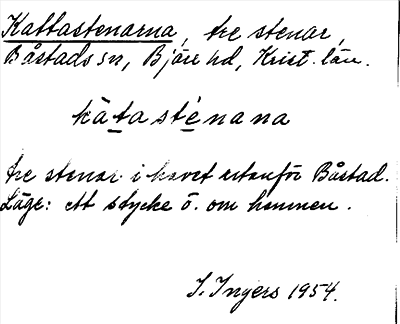 Kattastenarna, tre stenar,
Båstads sn, Bjäre hd, Krist. län.
kàtasténana
tre stenar i havet utanför Båstad.
Läge: ett stycke ö. om hamnen.
I. Ingers 1954.